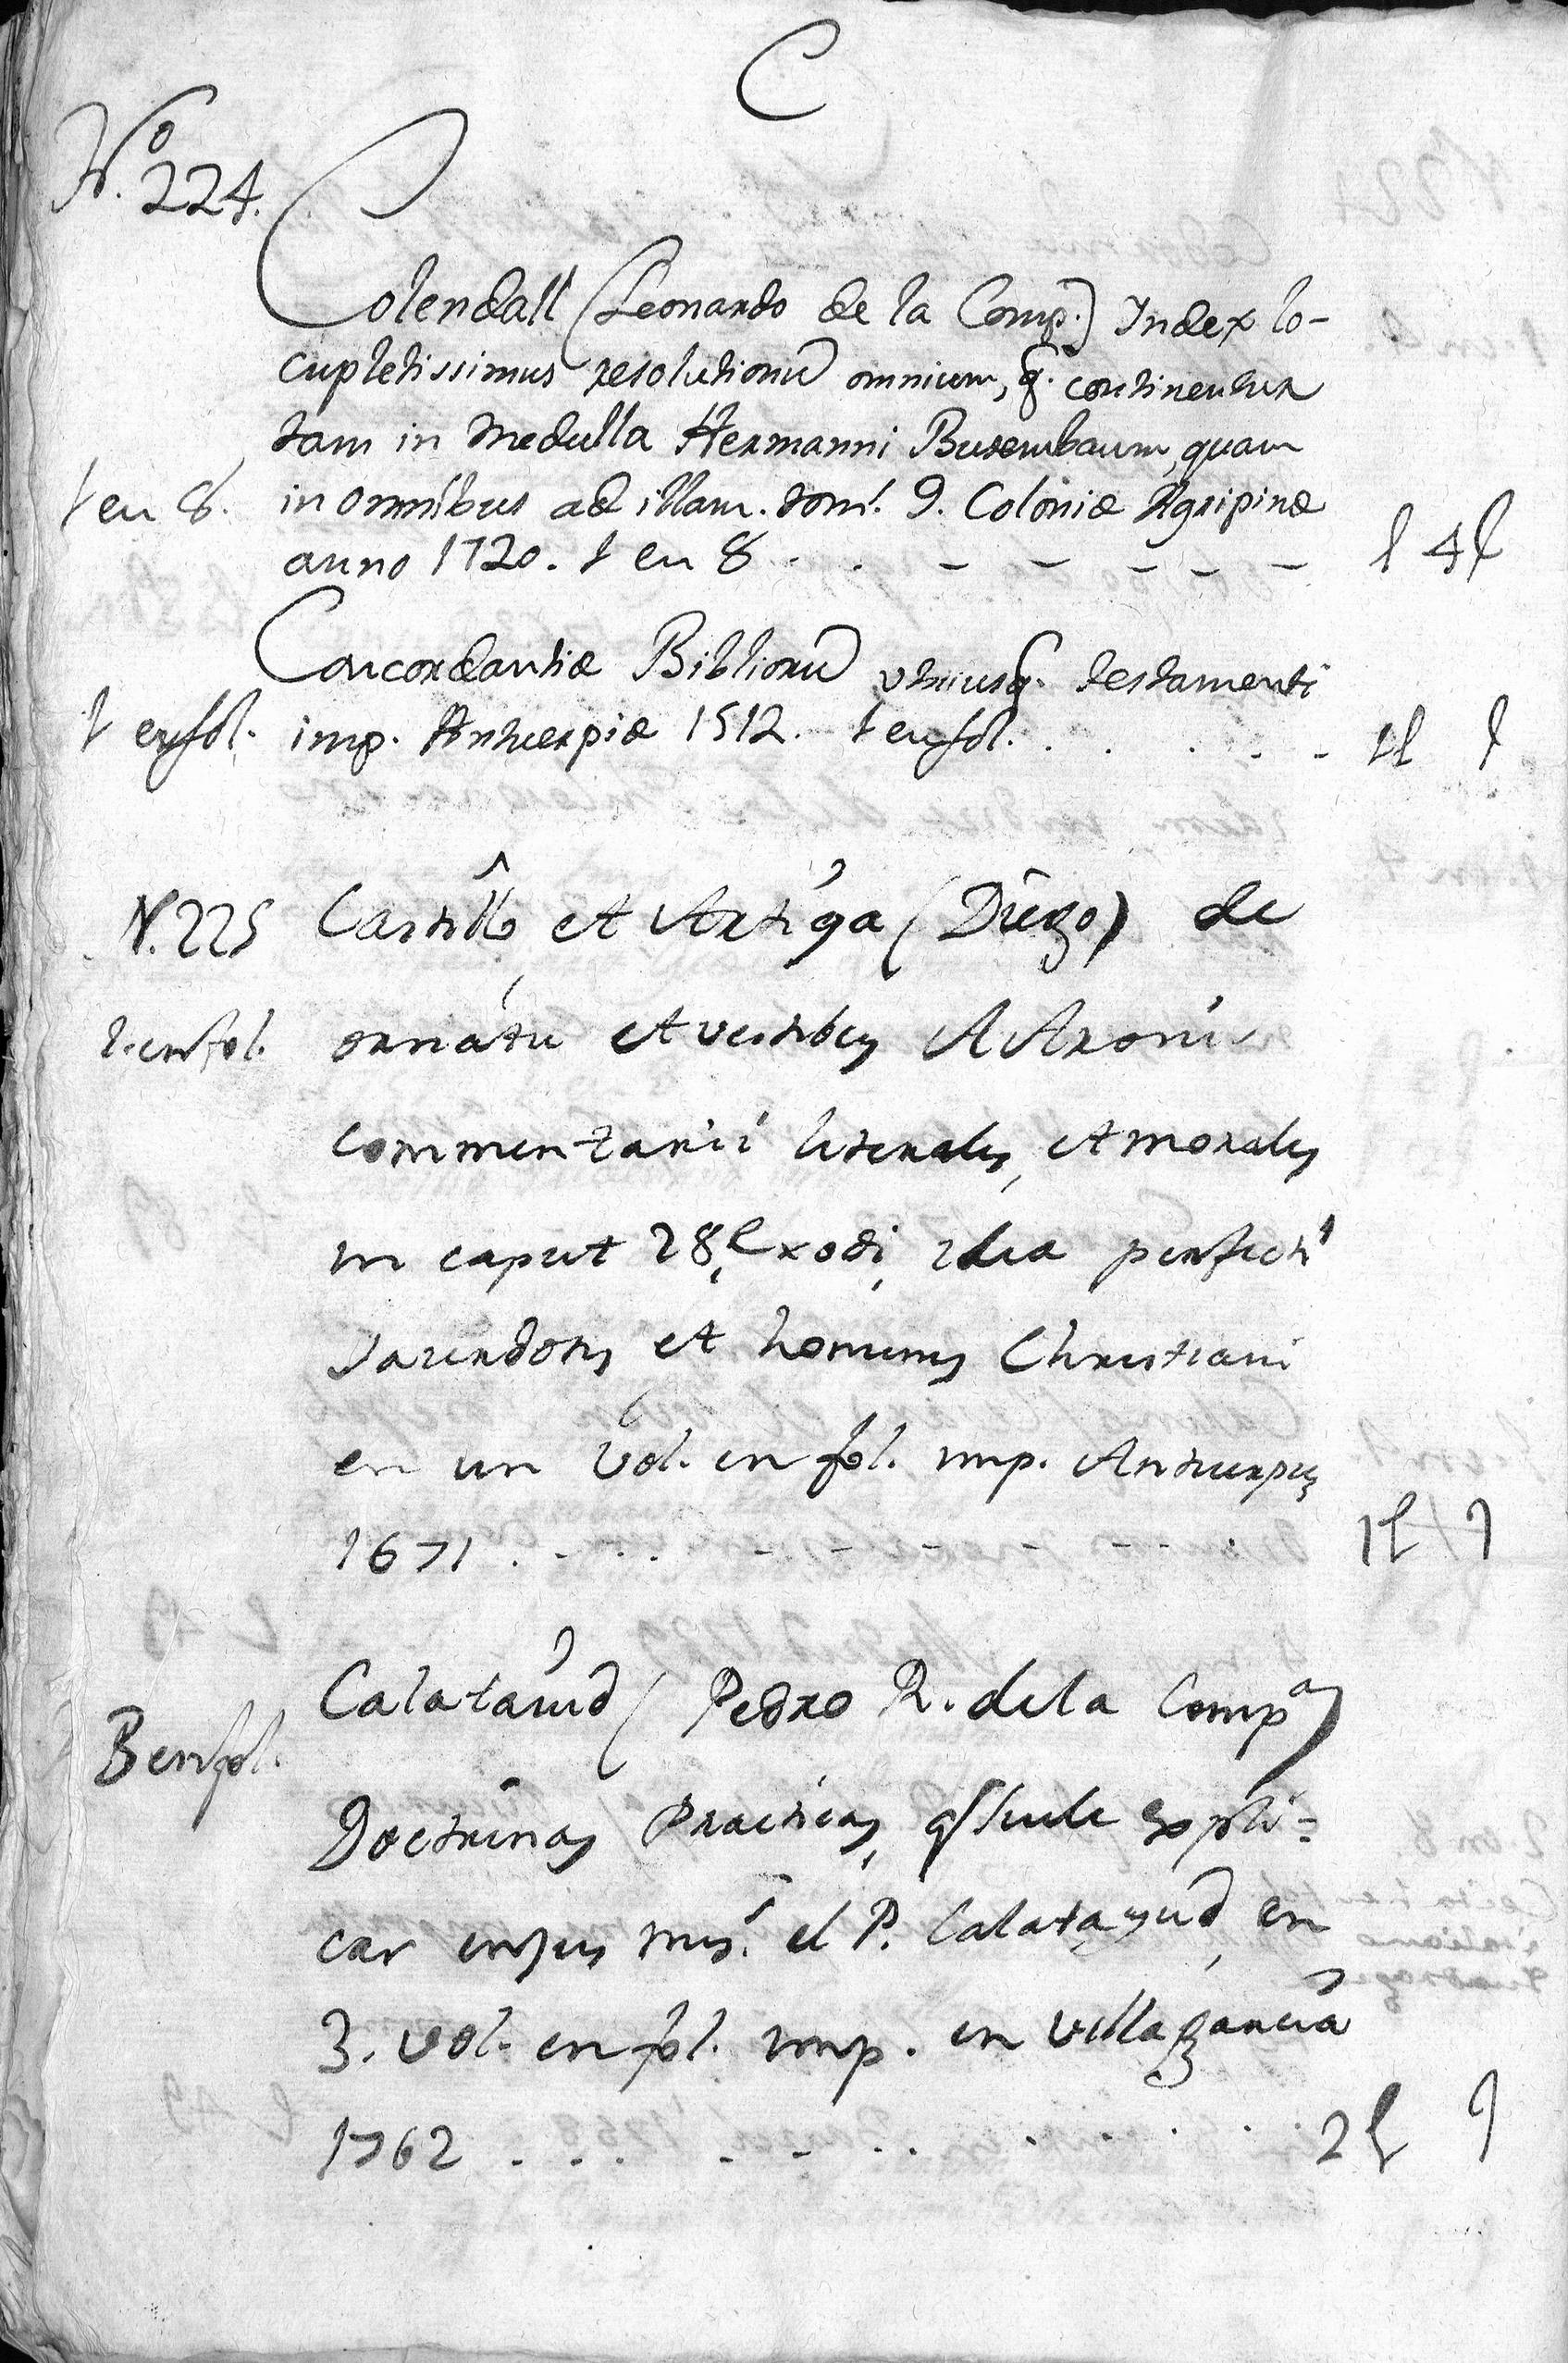 C
Nº 224.
Colendall (Leonardo de la Comp.) Index lo-
cupletissimus resolutionũ omnium, q. continentur
tam in Medulla Hermanni Busembaum, quam
1 en 8. in omnibus ad illam. tom. 9. Coloniæ Agripinæ
anno 1720. 1 en 8 . . - - - - - l 4 l
Concordantiæ Bibliorũ utriusq. testamenti
1 en fol. imp. Antuerpiæ 1512. 1 en fol. . . . . - 1l
N. 225 Castillo, et Artiga (Diego) de
1. en fol. ornatu et vestibus Aaronis
commentarii literales, et morales
in caput 28, Exodi, idea perfecti
Sacerdotis, et hominis Christiani
en un vol. en fol. imp. Antuerpiæ
1671 . - . . - - - - - - . 1l
Calataiud (Pedro R. de la Compª)
3 en fol.
Doctrinas Practicas, q suele expli=
car en sus mis. el P. Calatayud, en
3. vol. en fol. imp. en Villagarcia
1762 . . . - - . . . . . 2l